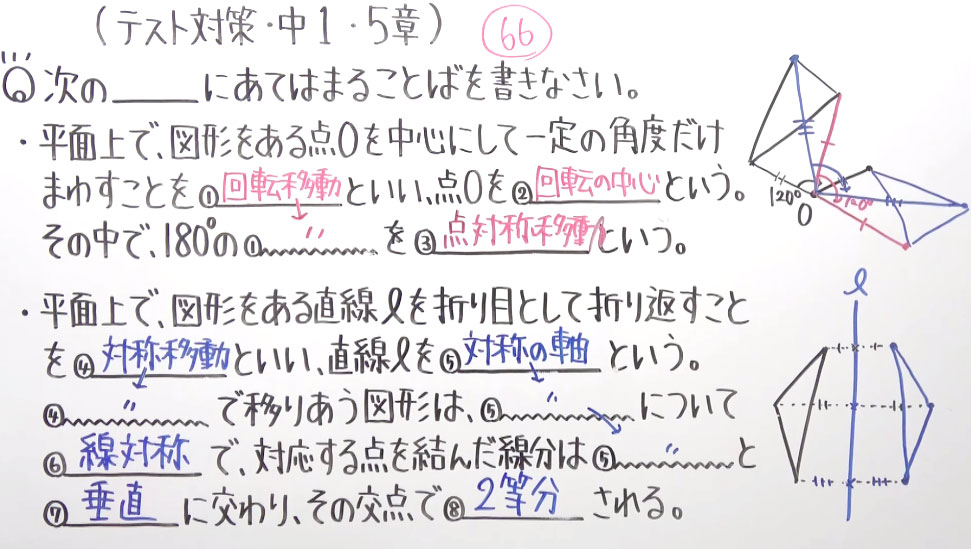 (テスト対策・中1・5章) 66
Q 次の____にあてはまることばを書きなさい。
・平面上で、図形をある点Oを中心にして一定の角度だけ
まわすことを①回転移動といい、点Oを②回転の中心という。
その中で、180°の①〃を③点対称移動という。
120° O 120°
・平面上で、図形をある直線ℓを折り目として折り返すこと
を④対称移動といい、直線ℓを⑤対称の軸という。
④〃で移りあう図形は、⑤〃について
⑥線対称で、対応する点を結んだ線分は⑤〃と
⑦垂直に交わり、その交点で⑧2等分される。
ℓ